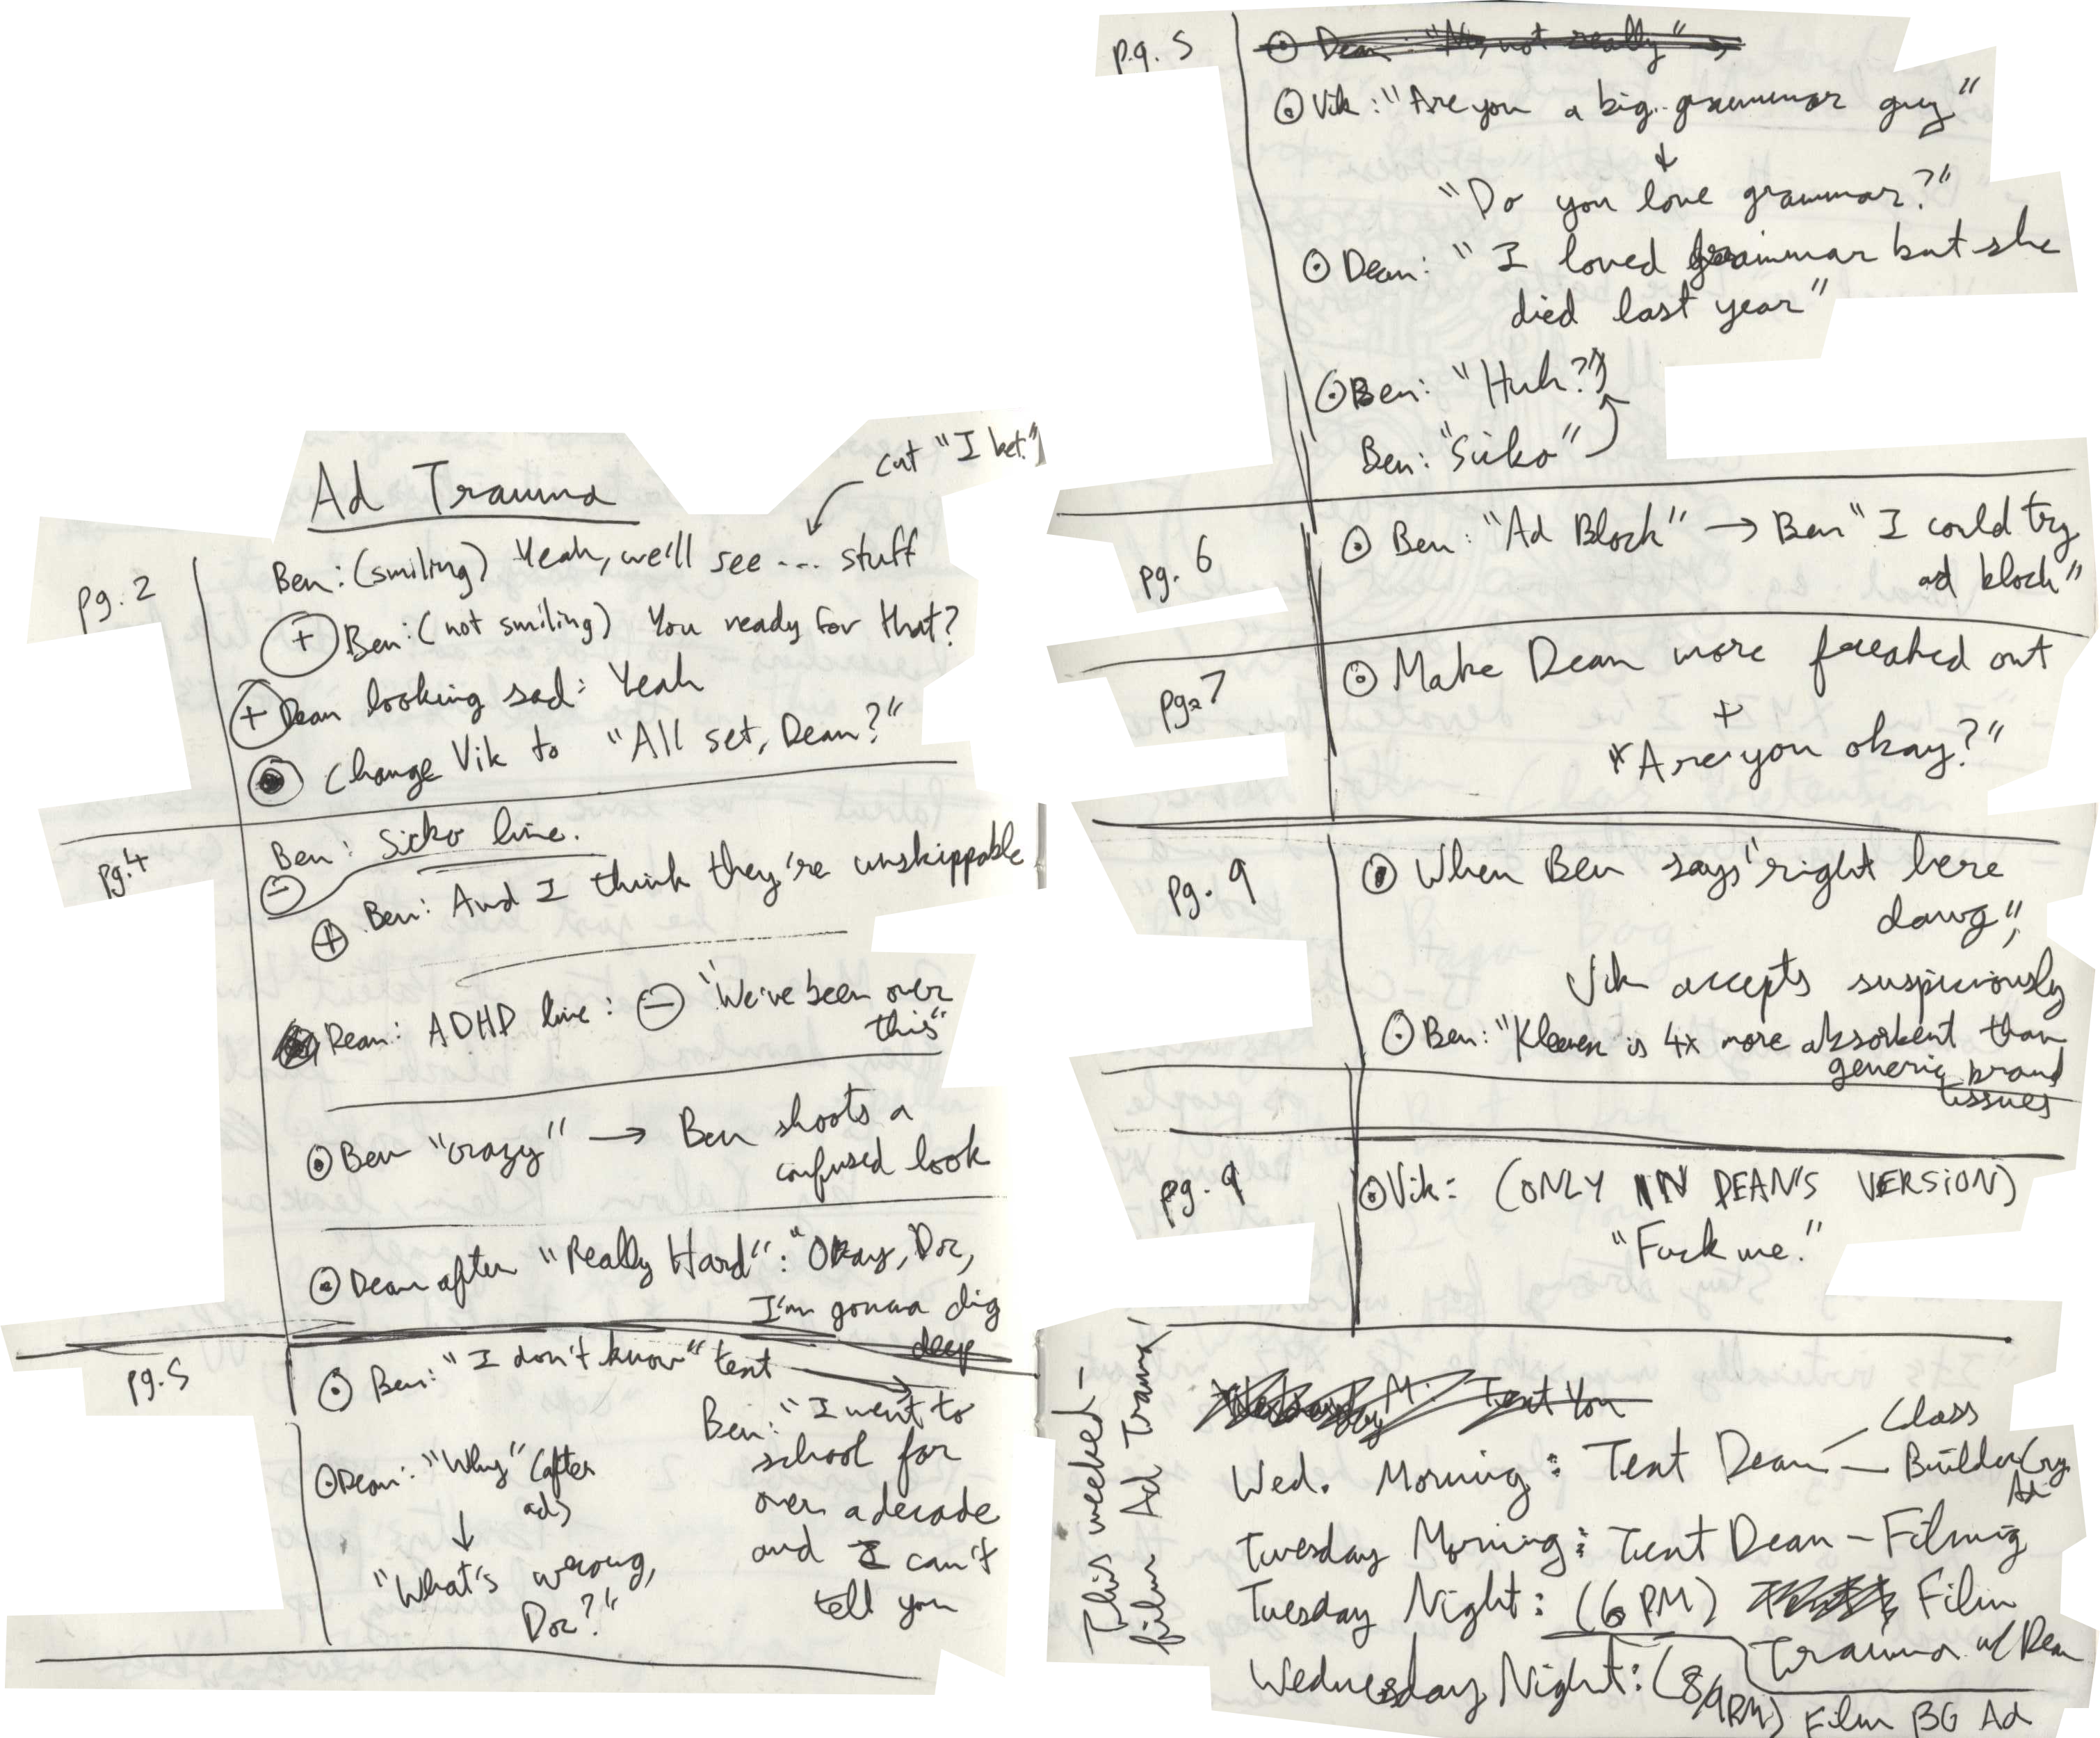 Ad Trauma
cut "I bet."
pg. 2
Ben: (smiling) Yeah, we'll see ... stuff
+ Ben: (not smiling) You ready for that?
+ Dean looking sad: Yeah
Change Vik to "All set, Dean?"
pg. 4
Ben: Sicko line.
- 
+ Ben: And I think they're unskippable
Dean: ADHD line: - "We've been over
this"
Ben "crazy" → Ben shoots a
confused look
Dean after "Really Hard": "Okay, Doc,
I'm gonna dig
deep
pg. 5
Ben: "I don't know" text →
Ben: "I went to
school for
over a decade
and I can't
tell you
Dean: "Why" (after
ad)
↓
"What's wrong,
Doc?"
pg. 5
Dean: "No, not really" →
Vik: "Are you a big grammar guy"
↓
"Do you love grammar?"
Dean: "I loved grammar but she
died last year"
Ben: "Huh?"
Ben: "Sicko"
pg. 6
Ben: "Ad Block" → Ben "I could try
ad block"
pg. 7
Make Dean more freaked out
+
"Are you okay?"
pg. 9
When Ben says "right here
dawg",
Vik accepts suspiciously
Ben: "Kleenex is 4x more absorbent than
generic brand
tissues
pg. 9
Vik: (ONLY IN DEAN'S VERSION)
"Fuck me."
This weeked-
film Ad Trauma
M: Text You
Wed. Morning: Text Dean - Class
- Builder Cry.
Ad
Tuesday Morning: Text Dean - Filmig
Tuesday Night: (6 PM) Film
Trauma w/ Dean
Wednesday Night: (8/9PM) Film BG Ad